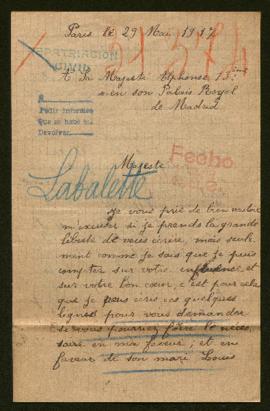 Paris le 29 Mai 1917
REPATRIACION
CIVIL
A Sa Majesté Alphonse 13ème
en son Palais Royal
de Madrid
A
Pedir informes
Que se
Devolver
Majesté
Fecho
Labalette
Je vous prie de bien vouloir
m'excuser si je prends la grande
liberté de vous écrire, mais seule
ment comme je sais que je puis
compter sur votre influence et
sur votre bon cœur, c'est pour cela
que je vous écris ces quelques
lignes pour vous demander
si vous pourriez faire le néces
saire en ma faveur, et en
faveur de mon mari Louis